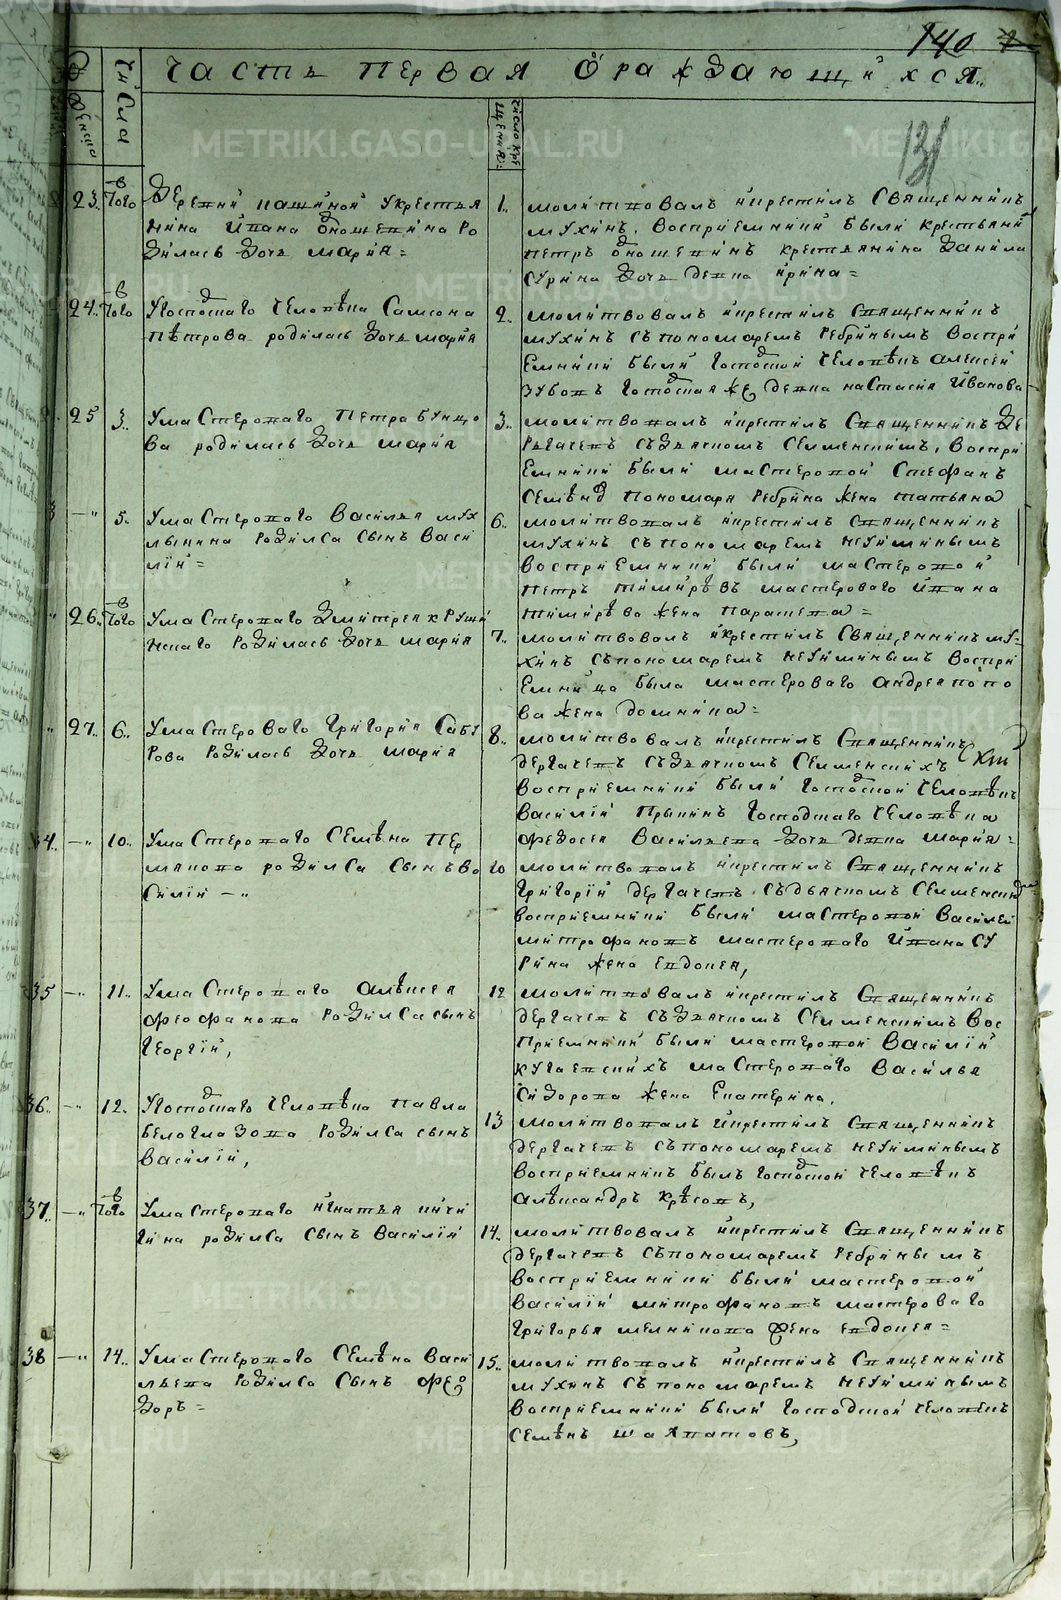 140
Часть Первая О раждающихся.
Числа
число кре
щения
131
23. того
Деревни пашиной укрестья
нина ивана Оношенина ро
дилась дочь мария =
1. молитвовалъ икрестилъ Священникъ
мухинъ. Восприемники были крестьянинъ
петръ Оношенинъ крестьянина данила
сурина дочь девка ирина =
24. того
Угосподскаго человѣка Самсона
пѣтрова родилась дочь мария
2. молитвовалъ икрестилъ Священникъ
мухинъ съпономаремъ ребринымъ Воспри
емники были Господской человѣкъ алексей
зубовъ Господская же девка настасия иванова
25 3.
Умастероваго Петра бунцо
ва родилась дочь мария
3. молитвовалъ икрестилъ Священникъ де
ргачевъ съдьячкомъ Селменскимъ, Воспри
емники были мастеровой Стефанъ
пономаря ребрина жена татьяна
5.
Умастероваго Василья мух
лынина родился сынъ Васи
лий =
6. молитвовалъ икрестилъ Священникъ
мухинъ съпономаремъ неуиминымъ
восприемники были мастеровой
петръ тимирѣвъ мастероваго ивана
тимирѣва жена парасковья =
26. того
Умастероваго дмитрея круши
нскаго родилась дочь мария
7. молитвовалъ икрестилъ Священникъ му=
хинъ съпономаремъ неуиминымъ Воспри
емница была мастероваго андрея попо
ва жена домника =
27. 6.
Умастероваго Григория Сабу
рова родилась дочь мария
8. молитвовалъ икрестилъ Священникъ
дергачевъ съдьячкомъ Селменскихъ
восприемники были господской человѣкъ
василий Прынинъ господскаго человѣка
федосея Васильева дочь девка мария =
34. 10.
Умастероваго Семѣна Пер
мякова родился сынъ ва
силий
10 молитвовалъ икрестилъ Священникъ
григорий дергачевъ съдьячкомъ Селменским
восприемники были мастеровой Василей
митрофановъ мастероваго ивана су
рина жена евдокея,
35 11.
Умастероваго алѣксея
феофанова родился сынъ
георгий,
12 молитвовалъ икрестилъ Священникъ
дергачевъ съдьячкомъ Селменскимъ вос
приемники были мастеровой василий
мастероваго Василья
сидорова жена Екатерина.
36. 12.
Угосподскаго человѣка павла
белоглазова родился сынъ
василий,
13 молитвовалъ икрестилъ Священникъ
дергачевъ съпономаремъ неуиминымъ
восприемникъ былъ господской человѣкъ
алѣксандръ крѣсовъ,
37. того
Умастероваго игнатья кичи
гина родился сынъ василий
14. молитвовалъ икрестилъ Священникъ
дергачевъ съпономаремъ ребринымъ
восприемники были мастеровой
василий митрофановъ мастероваго
григорья мелникова жена евдокея =
38 14.
Умастероваго Семѣна васи
льева родился сынъ фео
доръ =
15. молитвовалъ икрестилъ Священникъ
мухинъ съпономаремъ неуиминымъ
восприемники были господской человекъ
семѣнъ шахматовъ,